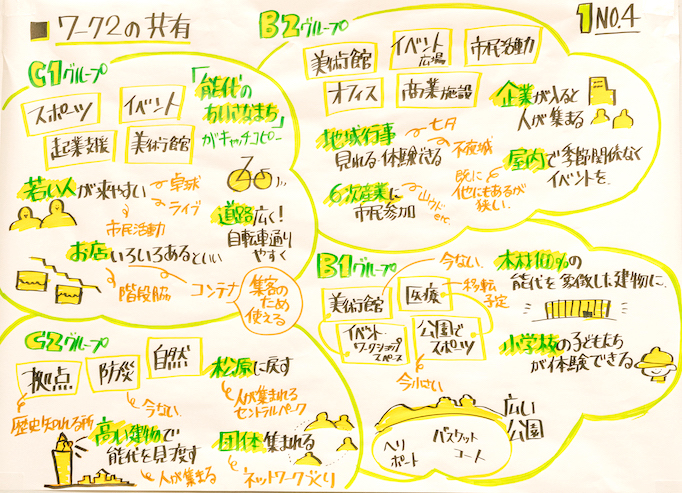 ワーク2の共有
1 NO.4
C1グループ
スポーツ
イベント
起業支援
美術館
「能代の
ちいさなまち」
がキャッチコピー
若い人が来やすい
卓球
ライブ
市民活動
道路広く!
自転車通り
やすく
お店いろいろあるといい
階段脇
コンテナ
集客の
ため
使える
B2グループ
美術館
イベント
広場
市民活動
オフィス
商業施設
企業が入ると
人が集まる
地域行事
見れる・体験できる
七夕
不夜城
6次産業に
市民参加
山ウド
etc
既に
他にもあるが
狭い
屋内で季節関係なく
イベントを
B1グループ
美術館
医療
今ない
移転
予定
イベント
ワークショップ
スペース
公園で
スポーツ
今小さい
木材100%の
能代を象徴した建物に
小学校の子どもたち
が体験できる
広い
公園
ヘリ
ポート
バスケット
コート
C2グループ
拠点
防災
自然
歴史知れる所
今ない
松原に戻す
人が集まれる
セントラルパーク
高い建物で
能代を見渡す
人が集まる
団体集まれる
ネットワークづくり